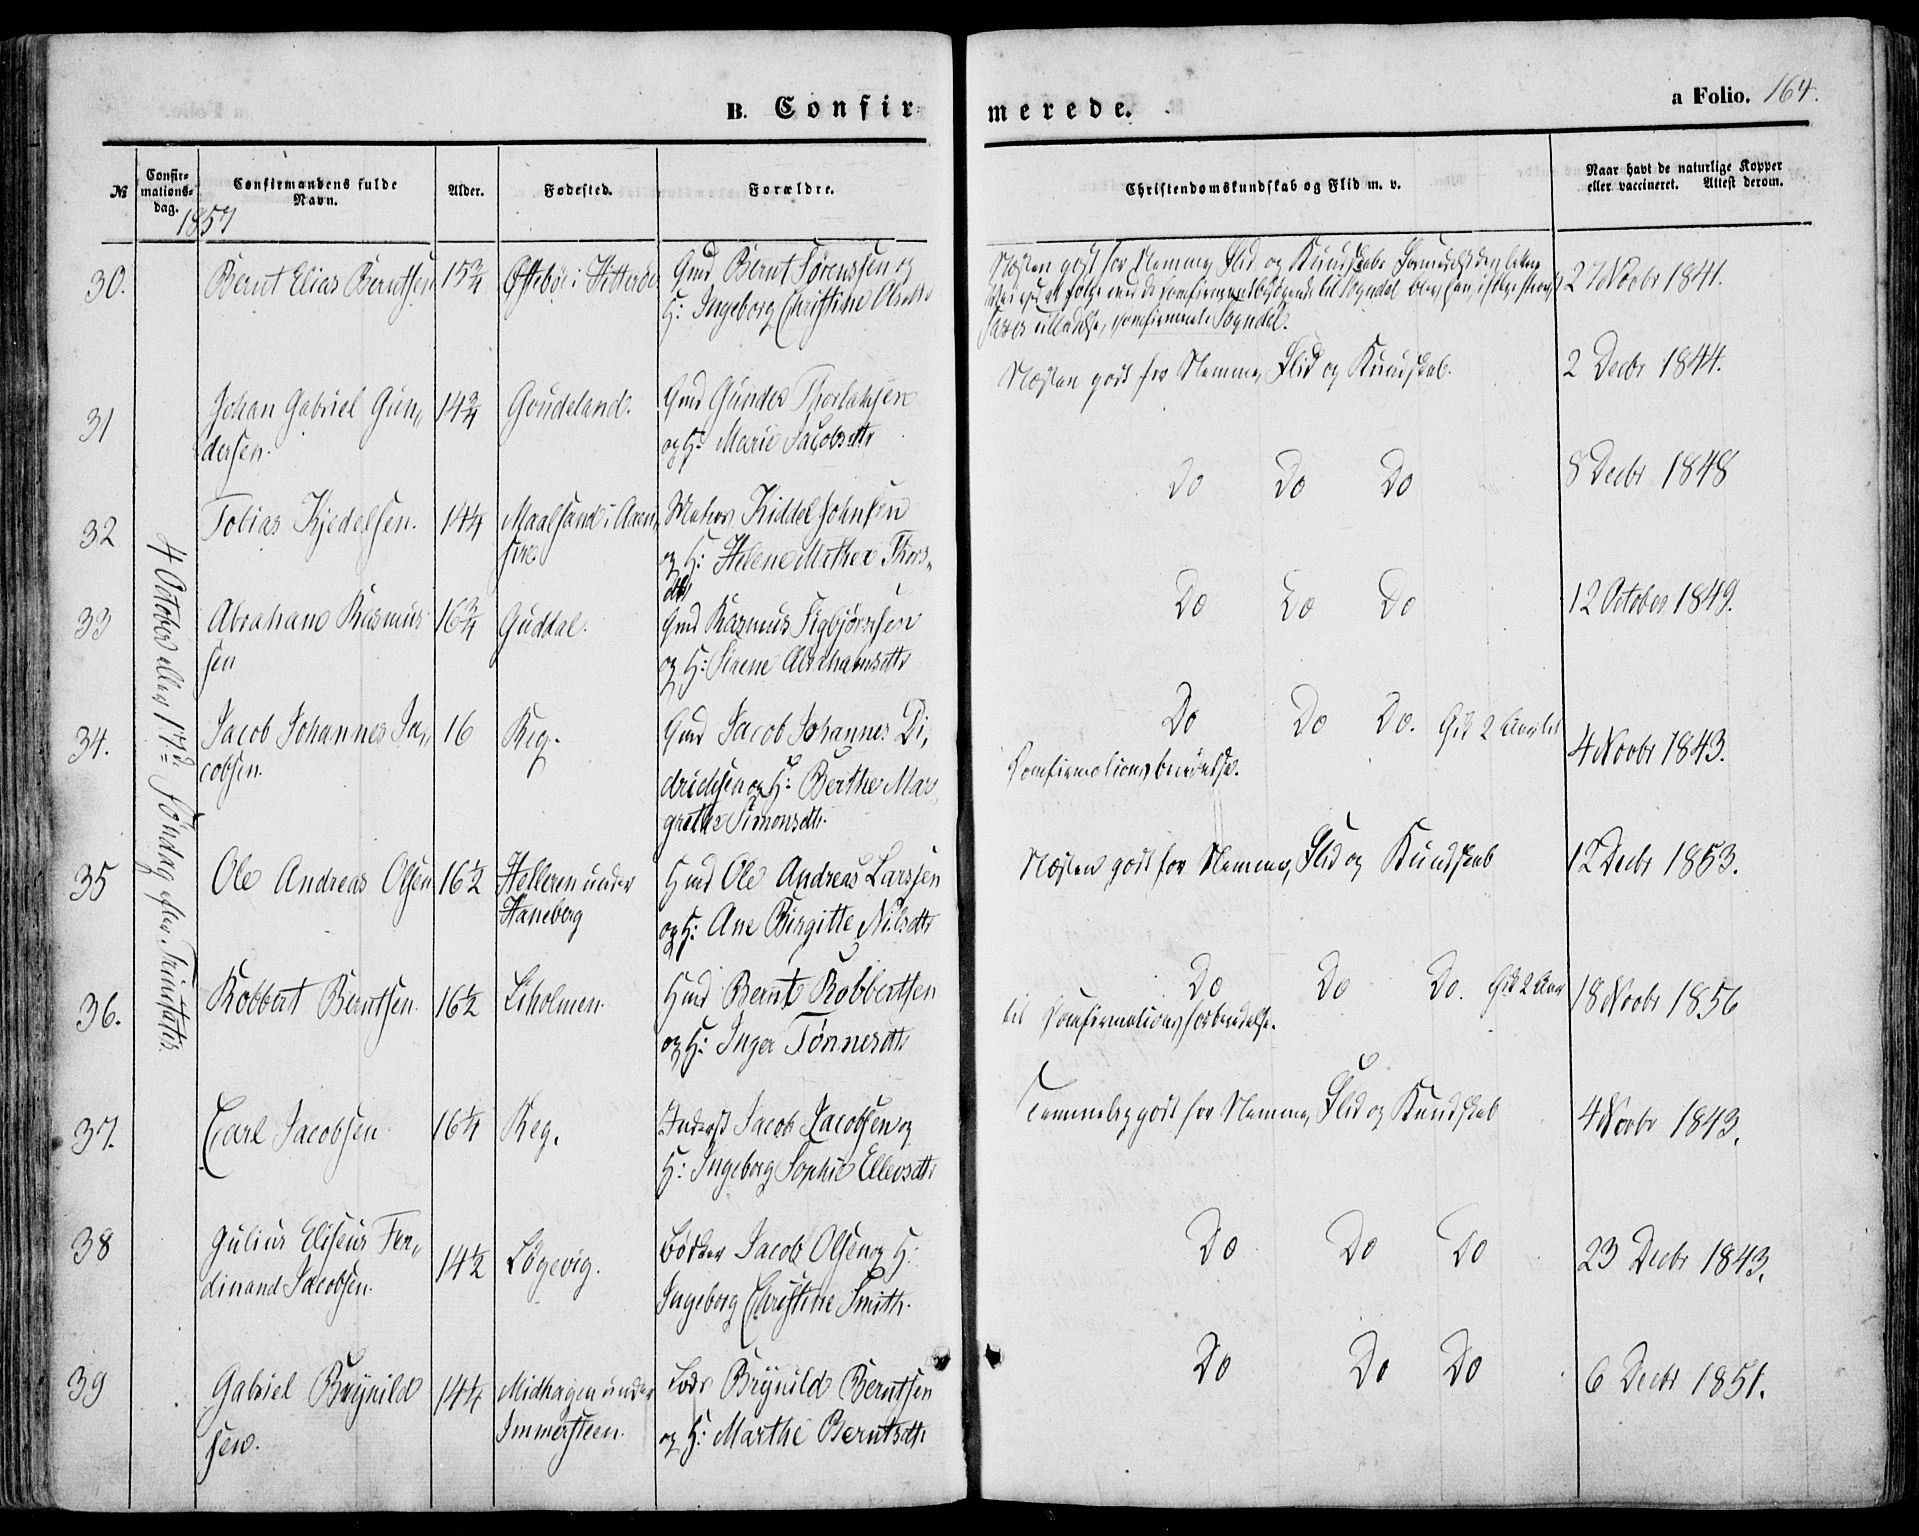 B. Confir
merede.
a Folio. 164.
№
Confir-
mations-
dag.
Confirmandens fulde
Navn.
Alder.
Fødested.
Forældre.
Christendomskundskab og Flid m. v.
Naar havt de naturlige Kopper
eller vaccineret. Attest derom.
1857
4 October eller 17de Søndag efter Trinitatis.
30.
Bernt Elias Berntsen
15 3/4
Gmd Bernt Sørenssen og
H: Ingeborg Christine Olsdtr
Næsten godt for Nemme, Flid og Kundskab.
confirmeret i Sogndal.
27 Novbr 1841.
31
Johan Gabriel Gun„
dersen.
14 3/4
Goudeland.
Gmd Gunder Thorlaksen
og H: Marie Jacobsdtr
Næsten godt for Nemme, Flid og Kundskab.
2 Decbr 1844.
32
Tobias Kjedelsen.
14 1/4
Maalsand i Aaen„
sire
Kiddel Johnsen
og H: Helene Thors„
dtr
Do Do Do
8 Decbr 1848
33
Abraham Rasmus
sen
16 3/4
Guddal.
Gmd Rasmus Sigbjørnsen
og H: Sirene Abrahamsdtr
Do Do Do
12 October 1849.
34.
Jacob Johannes Ja„
cobsen.
16
Reg.
Gmd Jacob Johannes Di„
drichsen og H: Berthe Mar„
grethe Simonsdtr.
Do Do Do. Gik 2 Aar til
Confirmationsberedelse.
4 Novbr 1843.
35
Ole Andreas Olsen
16 1/2
Helleren under
Haneberg
Hmd Ole Andreas Larssen
og H: Ane Birgitte Nilsdtr
Næsten godt for Nemme, Flid og Kundskab
12 Decbr 1853.
36.
Robbert Berntsen.
16 1/2
Liholmen.
Hmd Bernt Robbertsen
og H: Inger Tønnesdtr
Do Do Do. Gik 2 Aar
til Confirmationsforberedelse.
18 Novbr 1856
37.
Carl Jacobsen
16 1/4
Reg.
Inderst Jacob Jacobsen og
H: Ingeborg Sophie Ellevsdtr
Temmelig godt for Nemme, Flid og Kundskab
4 Novbr 1843.
38
Julius Eliseus Fer„
dinand Jacobsen.
14 1/2
Løgevig.
Bødker Jacob Olsen og H:
Ingeborg Christine Smith.
Do Do Do
23 Decbr 1843.
39
Gabriel Brynild
sen.
14 1/4
Midhagen under
Immersteen.
Lods Brynild Berntsen
og H: Marthe Berntsdtr
Do Do Do
6 Decbr 1851.